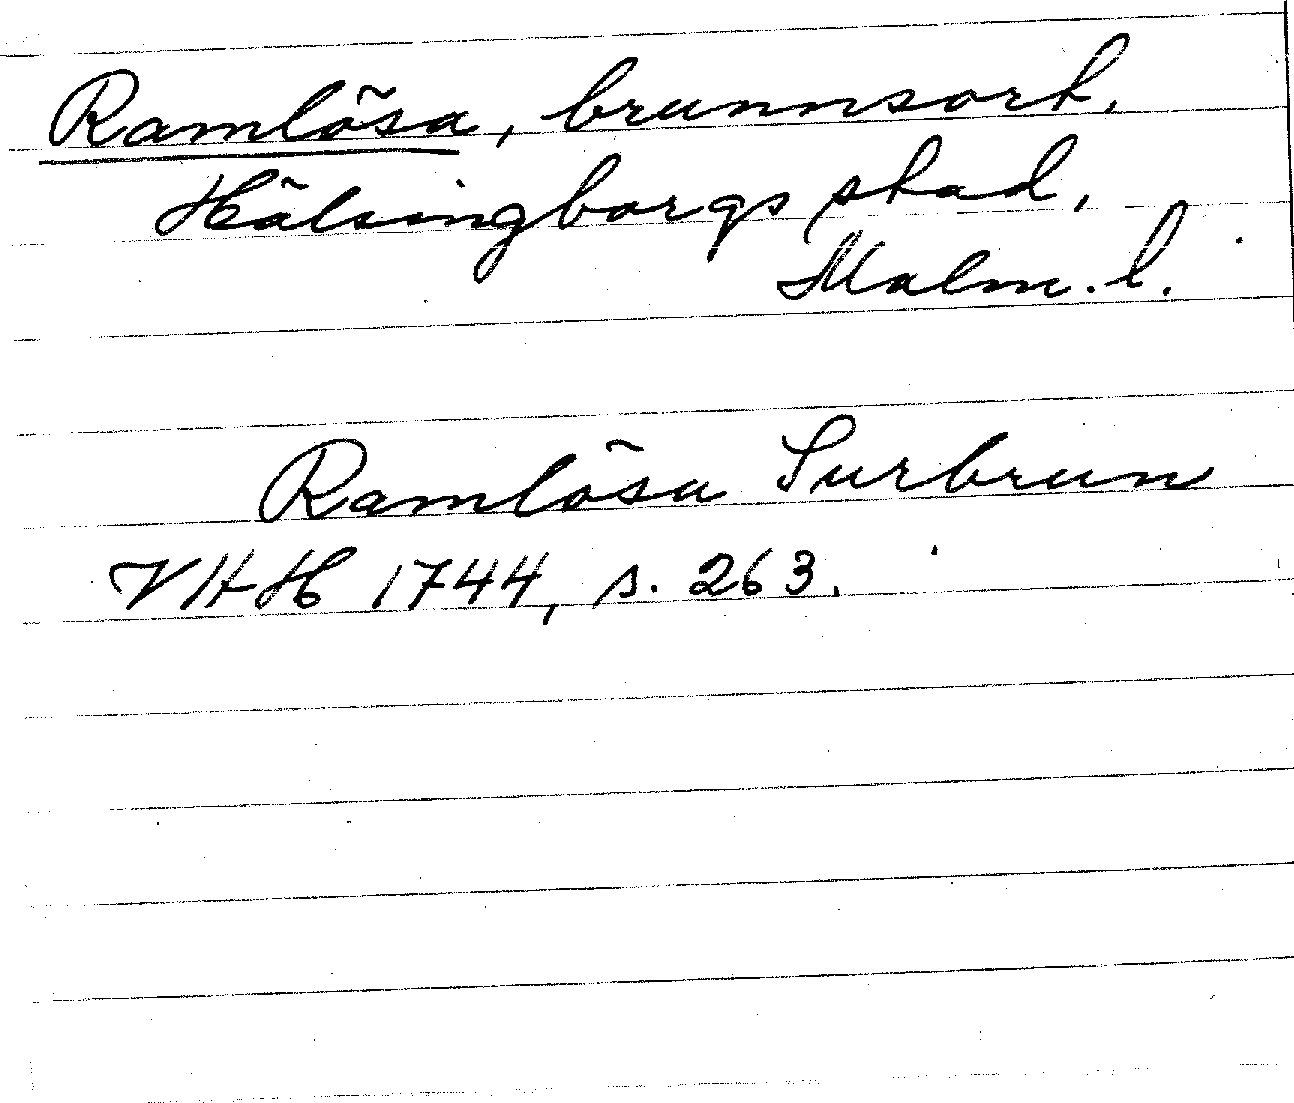 Ramlösa, brunnsort,
Hälsingborgs stad,
Malm. l.
Ramlösa Surbrun
VHH 1744, s. 263.